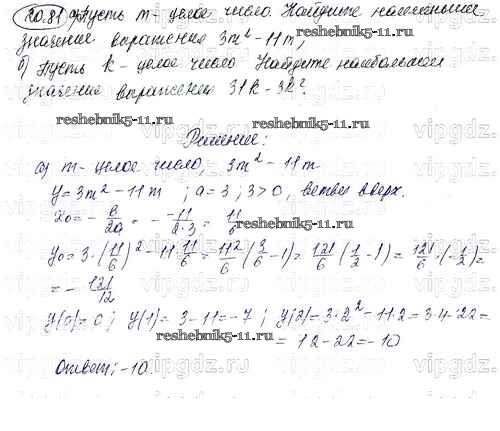 20.81 а) Пусть m - целое число. Найдите наименьшее
значение выражения 3m² - 11m;
б) Пусть k - целое число Найдите наибольшее
значение выражения 31k - 3k².
reshebnik5-11.ru
reshebnik5-11.ru
Решение:
а) m - целое число, 3m² - 11m
y = 3m² - 11m ; a = 3 ; 3 > 0, ветви вверх.
x₀ = - b/2a = - -11/2·3 = 11/6
y₀ = 3·(11/6)² - 11·11/6 = 11²/6 (3/6 - 1) = 121/6 (1/2 - 1) = 121/6 ·(-1/2) =
= - 121/12
y(0) = 0 ; y(1) = 3 - 11 = -7 ; y(2) = 3·2² - 11·2 = 3·4 - 22 =
= 12 - 22 = -10
Ответ: -10.
reshebnik5-11.ru
reshebnik5-11.ru
vipgdz.ru
vipgdz.ru
vipgdz.ru
vipgdz.ru